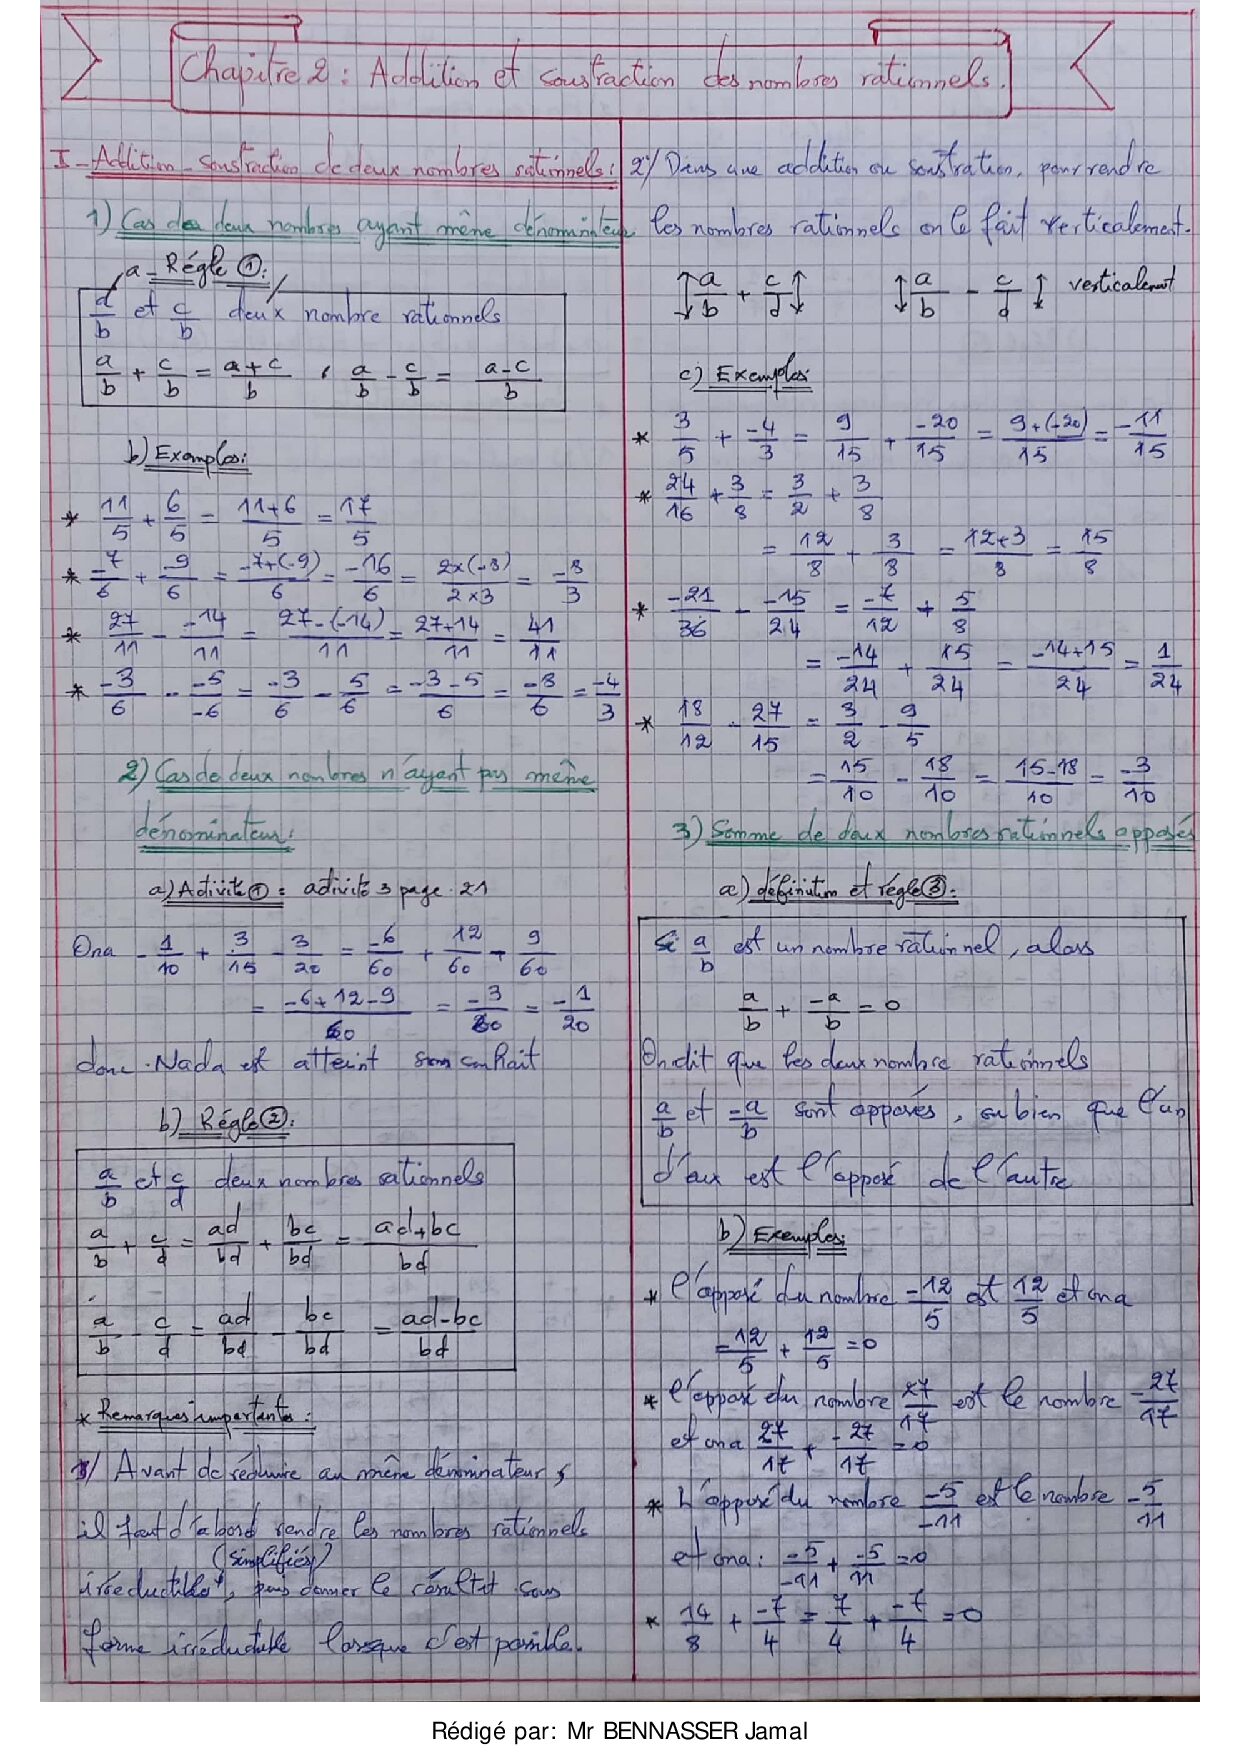 Chapitre 2 : Addition et soustraction des nombres rationnels.
I - Addition - soustraction de deux nombres rationnels :
1) Cas de deux nombres ayant même dénominateur
a - Régle ① :
a/b et c/b deux nombre rationnels
a/b + c/b = a+c/b , a/b - c/b = a-c/b
b) Exemples :
* 11/5 + 6/5 = 11+6/5 = 17/5
* -7/6 + -9/6 = -7+(-9)/6 = -16/6 = 2×(-8)/2×3 = -8/3
* 27/11 - -14/11 = 27-(-14)/11 = 27+14/11 = 41/11
* -3/6 - -5/-6 = -3/6 - 5/6 = -3-5/6 = -8/6 = -4/3
2) Cas de deux nombres n'ayant pas même
dénominateur :
a) Activité ① : activité 3 page 21
Ona -1/10 + 3/15 - 3/20 = -6/60 + 12/60 - 9/60
= -6+12-9/60 = -3/60 = -1/20
donc Nada est atteint son souhait
b) Régle ② :
a/b et c/d deux nombres rationnels
a/b + c/d = ad/bd + bc/bd = ad+bc/bd
a/b - c/d = ad/bd - bc/bd = ad-bc/bd
* Remarques importantes :
1/ Avant de réduire au même dénominateur,
il faut d'abord rendre les nombres rationnels
(simplifiés)
irréductibles, puis donner le résultat sous
forme irréductible lorsque c'est possible.
2/ Dans une addition ou soustration, pour rendre
les nombres rationnels on le fait verticalement.
↕ a/b + c/d ↕ ↕ a/b - c/d ↕ verticalement
c) Exemples
* 3/5 + -4/3 = 9/15 + -20/15 = 9+(-20)/15 = -11/15
* 24/16 + 3/8 = 3/2 + 3/8
= 12/8 + 3/8 = 12+3/8 = 15/8
* -21/36 - -15/24 = -7/12 + 5/8
= -14/24 + 15/24 = -14+15/24 = 1/24
* 18/12 - 27/15 = 3/2 - 9/5
= 15/10 - 18/10 = 15-18/10 = -3/10
3) Somme de deux nombres rationnels opposés
a) définition et régle ③ :
Si a/b est un nombre rationnel, alors
a/b + -a/b = 0
On dit que les deux nombre rationnels
a/b et -a/b sont opposés, ou bien que l'un
d'eux est l'opposé de l'autre
b) Exemples
* l'opposé du nombre -12/5 est 12/5 et ona
-12/5 + 12/5 = 0
* l'opposé du nombre 27/17 est le nombre -27/17
et ona 27/17 + -27/17 = 0
* L'opposé du nombre -5/-11 est le nombre -5/11
et ona : -5/-11 + -5/11 = 0
* 14/8 + -7/4 = 7/4 + -7/4 = 0
Rédigé par: Mr BENNASSER Jamal